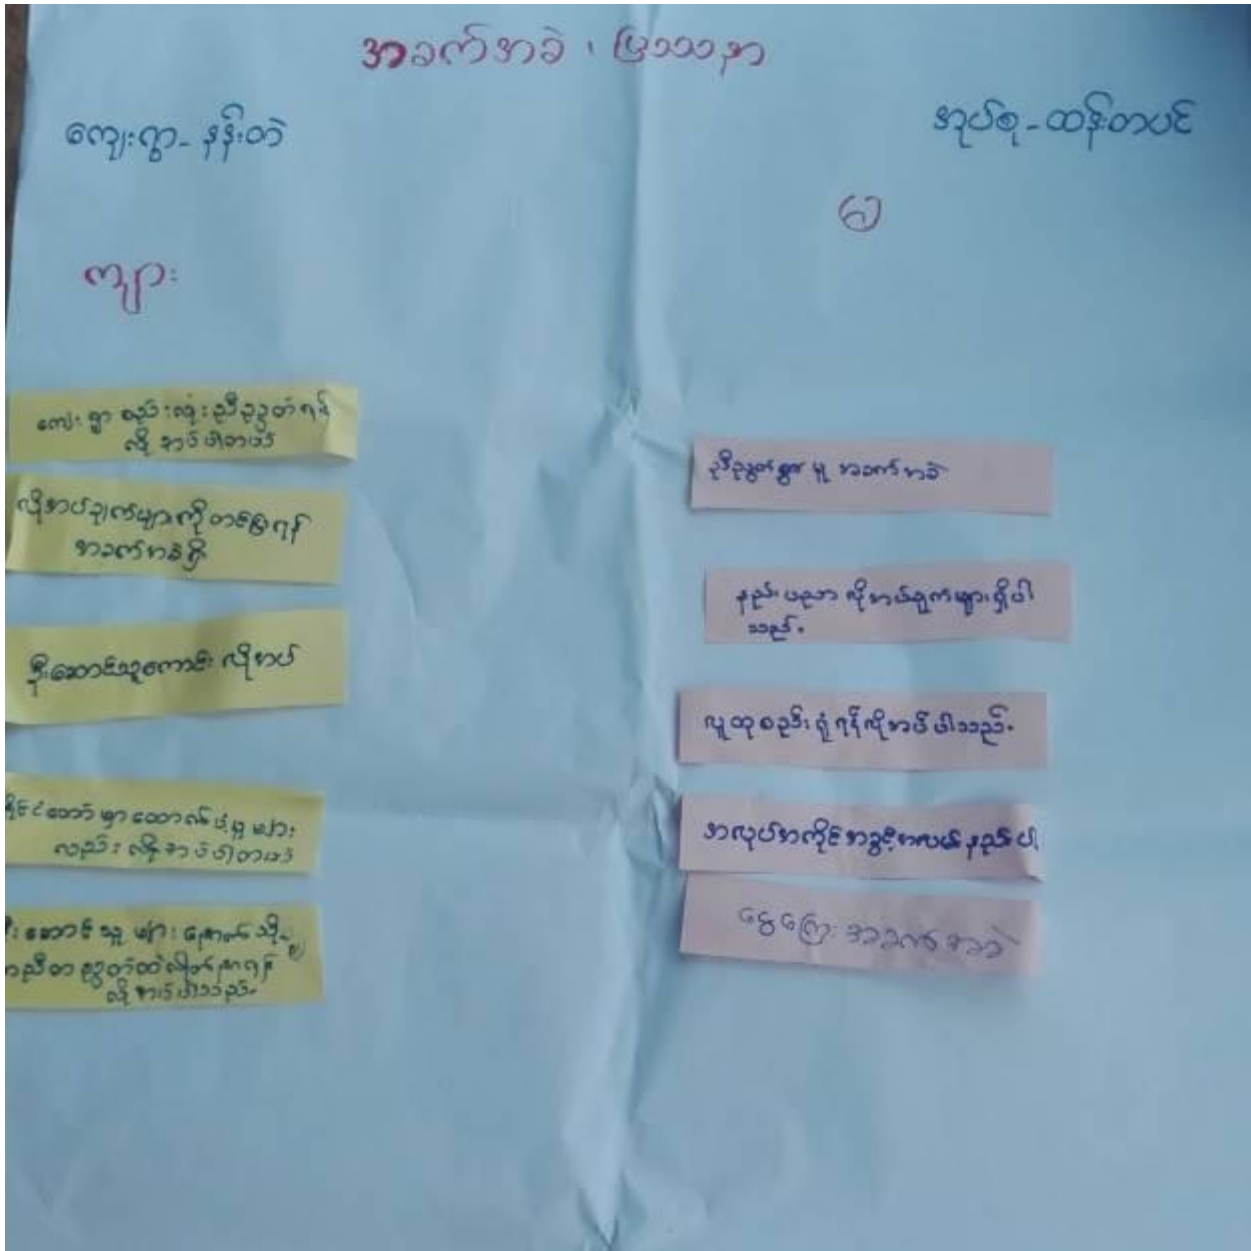 အခက်အခဲ ၊ ပြဿနာ
ကျေးရွာ - နန်းတဲ
အုပ်စု - ထန်းတပင်
မ
ကျား
ကျေးရွာ စည်းလုံးညီညွတ်ရန်
လိုအပ်ပါတယ်
လိုအပ်ချက်များကို တင်ပြရန်
အခက်အခဲရှိ
ဦးဆောင်သူကောင်း လိုအပ်
နိုင်ငံတော်မှာ ထောက်ပံ့မှု များ
လည်း လိုအပ်ပါတယ်
ဦးဆောင်သူ များ နောက်သို့
ညီညာ ညွတ်ထဲလိုက်နာရန်
လိုအပ်ပါသည်။
ညီညွတ်မှု အခက်အခဲ
နည်းပညာ လိုအပ်ချက်များရှိပါ
သည်။
လူထုစည်းရုံးရန်လိုအပ်ပါသည်။
အလုပ်အကိုင်အခွင့်အလမ်းနည်းပါ
ငွေကြေးအခက်အခဲ